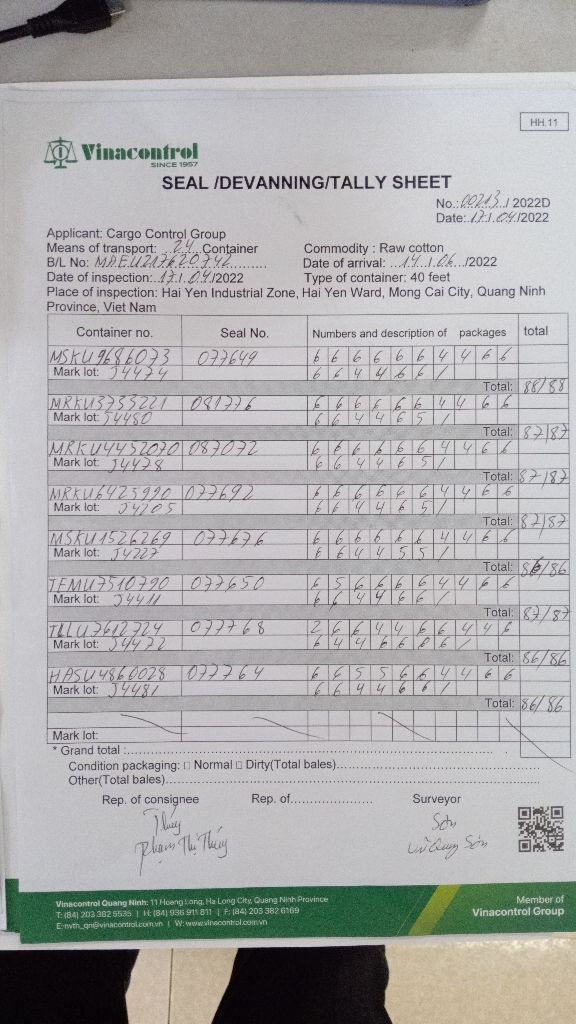 HH.11
Vinacontrol
SINCE 1957
SEAL /DEVANNING/TALLY SHEET
No.:00213./ 2022D
Date: 17/.04/2022
Applicant: Cargo Control Group
Means of transport: 24 Container Commodity : Raw cotton
B/L No: MAEU217620742 Date of arrival: 14/.06../2022
Date of inspection: 17/.04/2022 Type of container: 40 feet
Place of inspection: Hai Yen Industrial Zone, Hai Yen Ward, Mong Cai City, Quang Ninh
Province, Viet Nam
Container no. Seal No. Numbers and description of packages total
MSKU9686073 077649 6 6 6 6 6 6 4 4 6 6
Mark lot: J4474 6 6 4 4 6 6 /
Total: 88/88
MRKU3733221 081776 6 6 6 6 6 6 4 4 6 6
Mark lot: J4480 6 6 4 4 6 5 /
Total: 87/87
MRKU4452070 087072 6 6 6 6 6 6 4 4 6 6
Mark lot: J4478 6 6 4 4 6 5 /
Total: 87/87
MRKU6425990 077692 6 6 6 6 6 6 4 4 6 6
Mark lot: J4205 6 6 4 4 6 5 /
Total: 87/87
MSKU1526269 077676 6 6 6 6 6 6 4 4 6 6
Mark lot: J4227 6 6 4 4 5 5 /
Total: 86/86
TEMU7510790 077650 6 5 6 6 6 6 4 4 6 6
Mark lot: J4411 6 6 4 4 6 6 /
Total: 87/87
TLLU7612724 077768 2 6 6 4 4 6 6 4 4 6
Mark lot: J4472 6 4 4 6 6 8 6 /
Total: 86/86
HASU4860028 077764 6 6 5 5 6 6 4 4 6 6
Mark lot: J4481 6 6 4 4 6 6 /
Total: 86/86
Mark lot:
* Grand total :
Condition packaging: □ Normal □ Dirty(Total bales)
Other(Total bales)
Rep. of consignee Rep. of Surveyor
Thúy Sơn
Phạm Thị Thúy Vũ Quang Sơn
Vinacontrol Quang Ninh: 11 Hoang Long, Ha Long City, Quang Ninh Province
T: (84) 203 382 5535 | H: (84) 936 911 811 | F: (84) 203 382 6169
E:nvth_qn@vinacontrol.com.vn | W: www.vinacontrol.com.vn
Member of
Vinacontrol Group